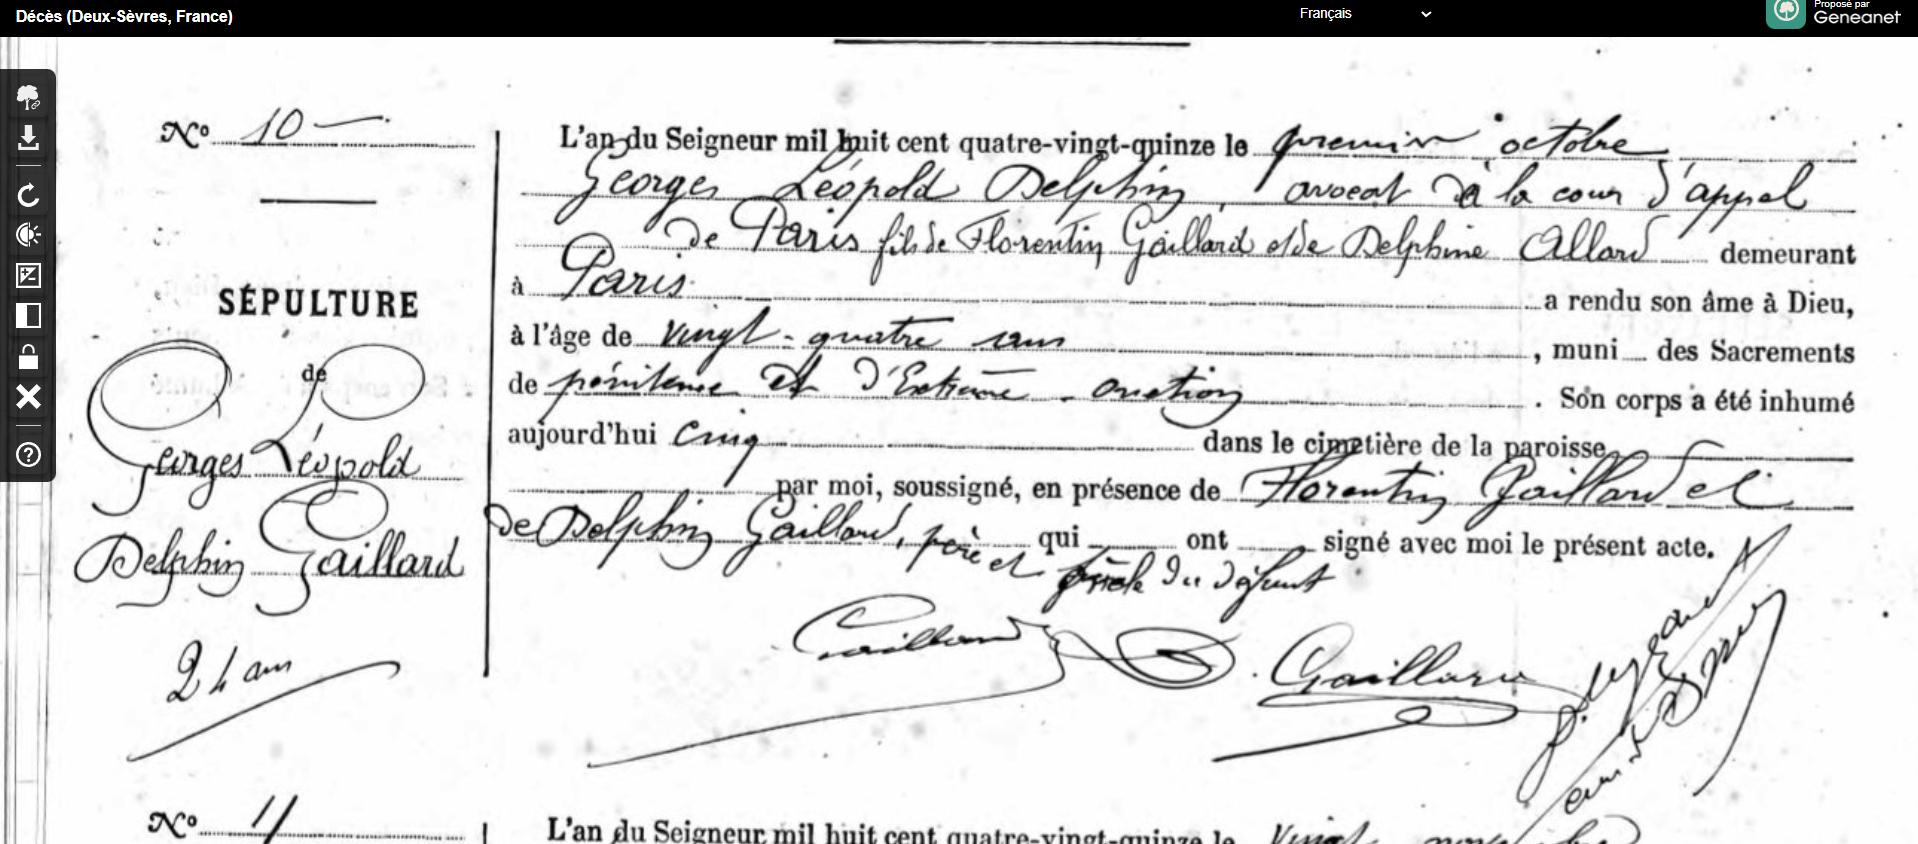 Décès (Deux-Sèvres, France)
Français
Proposé par
Geneanet
N° 10
L'an du Seigneur mil huit cent quatre-vingt-quinze le premier octobre
Georges Léopold Delphin, avocat à la cour d'appel
de Paris fils de Florentin Gaillard et de Delphine Allard demeurant
à Paris a rendu son âme à Dieu,
à l'âge de vingt-quatre ans, muni des Sacrements
de pénitence et d'Extrême-onction. Son corps a été inhumé
aujourd'hui cinq dans le cimetière de la paroisse
par moi, soussigné, en présence de Florentin Gaillard et
de Delphin Gaillard, père et du défunt
qui ont signé avec moi le présent acte.
SÉPULTURE
de
Georges Léopold
Delphin Gaillard
24 ans
Gaillard
Gaillard
N° 11
L'an du Seigneur mil huit cent quatre-vingt-quinze le vingt